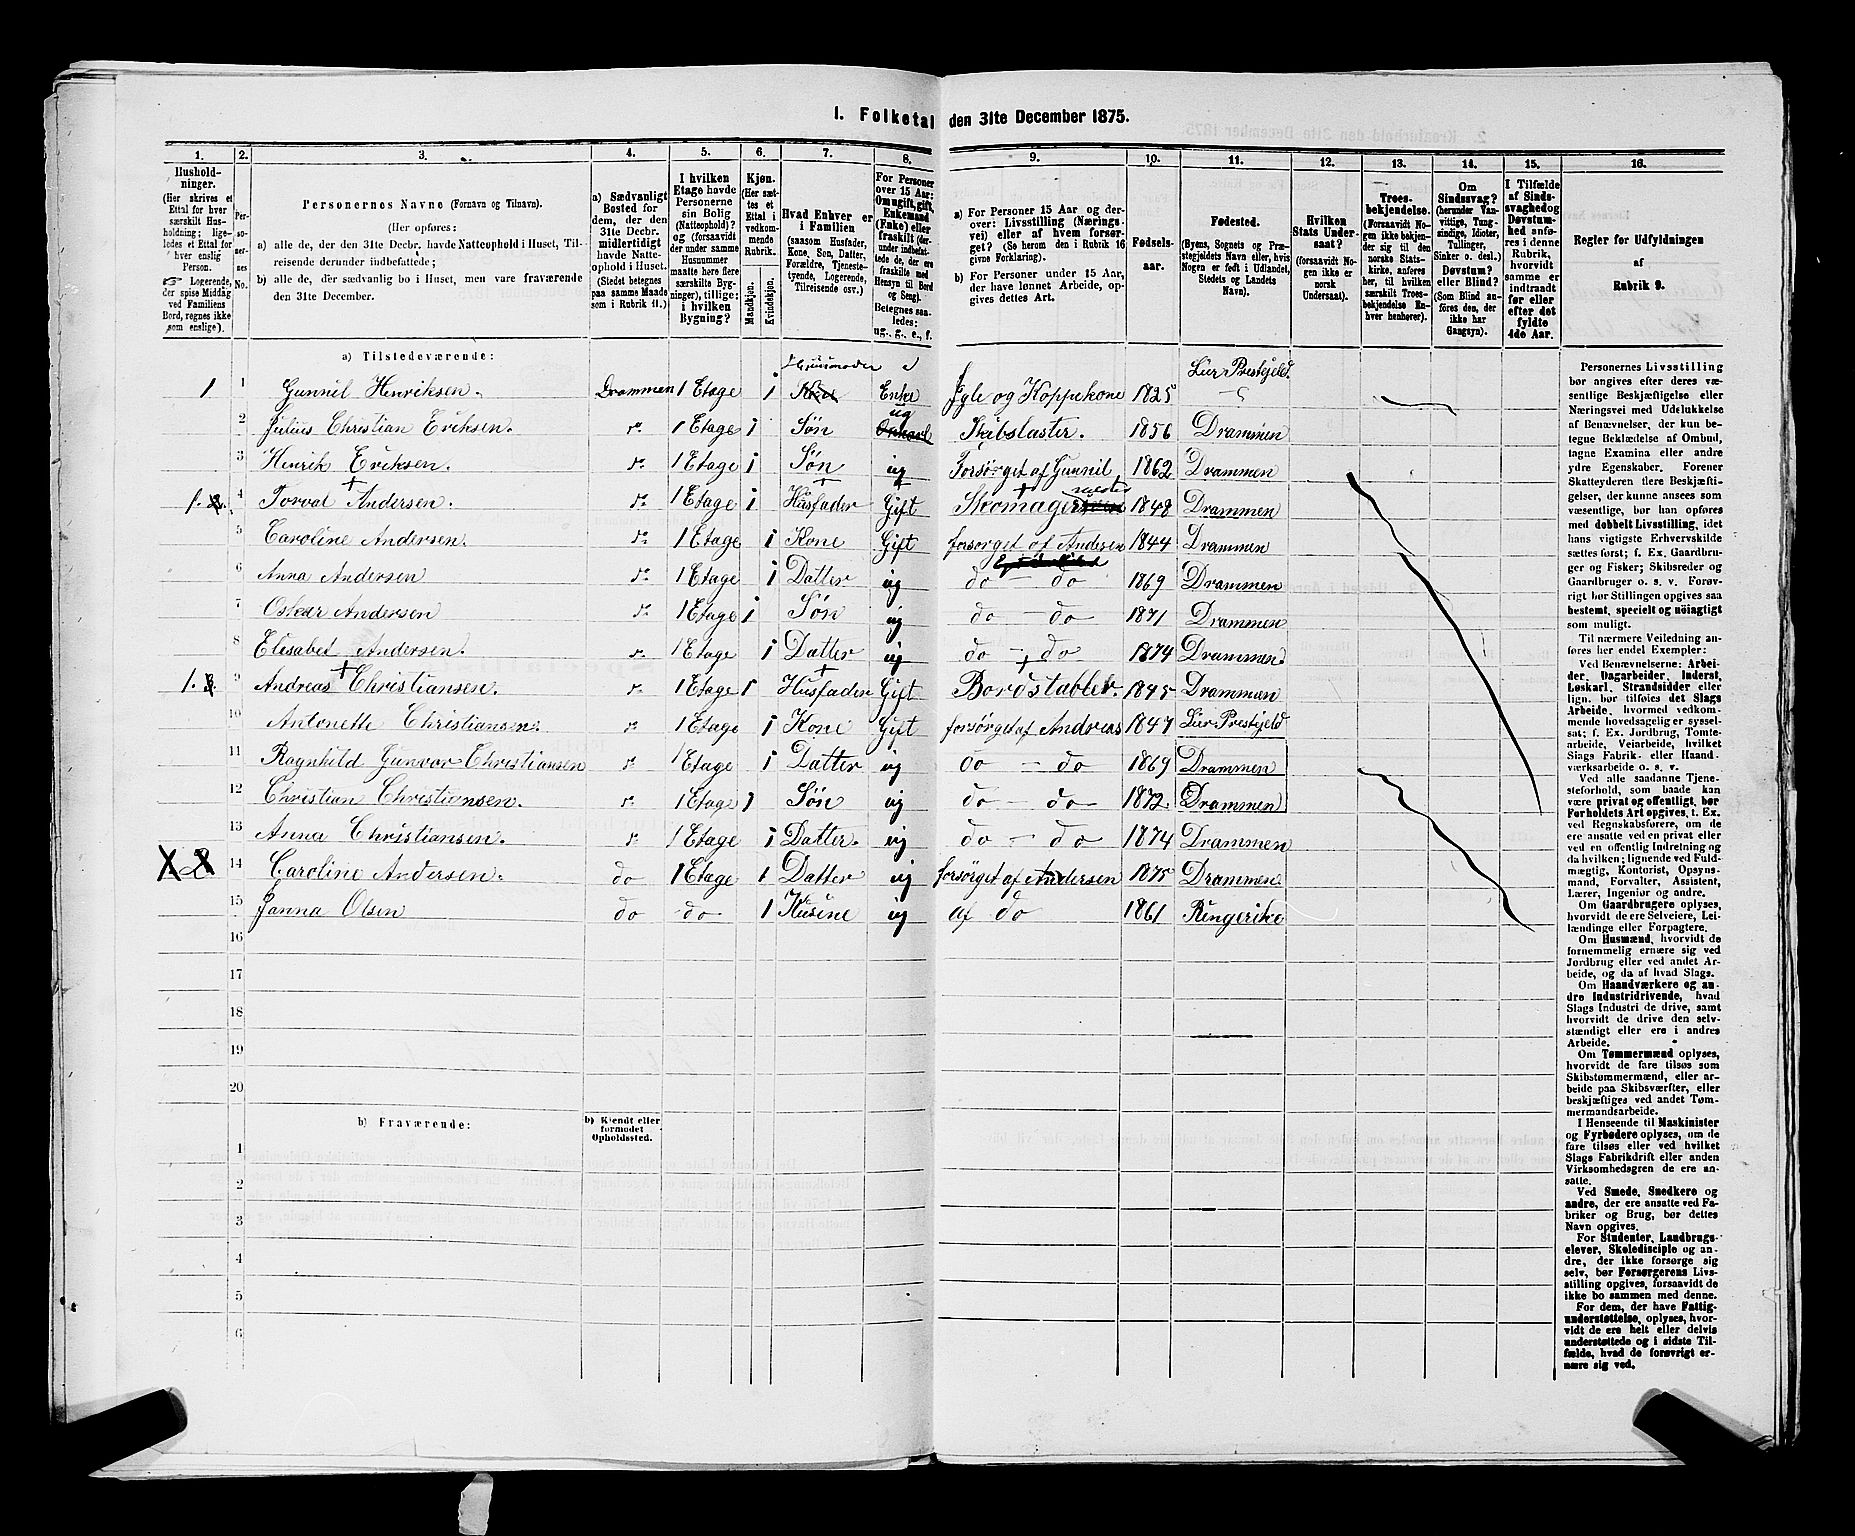 1. Folketal den 31te December 1875.
1. 2. 3. 4. 5. 6. 7. 8. 9. 10. 11. 12. 13. 14. 15. 16.
Husholdninger.
(Her skrives et Ettal for hver særskilt Husholdning; ligeledes et Ettal for hver enslig Person.
☞ Logerende, der spise Middag ved Familiens Bord, regnes ikke som enslige).
Personernes No.
Personernes Navne (Fornavn og Tilnavn).
(Her opføres:
a) alle de, der den 31te Decbr. havde Natteophold i Huset, Tilreisende derunder indbefattede;
b) alle de, der sædvanlig bo i Huset, men vare fraværende den 31te December.
a) Sædvanligt Bosted for dem, der den 31te Decbr. midlertidigt havde Natteophold i Huset. (Stedet betegnes paa samme Maade som i Rubrik 11.)
I hvilken Etage havde Personerne sin Bolig (Natteophold)? og (forsaavidt der under samme Husnummer maatte høre flere særskilte Bygninger), tillige: i hvilken Bygning?
Kjøn.
(Her sættes et Ettal i vedkommende Rubrik.
Mandkjøn. Kvindekjøn.
Hvad Enhver er i Familien
(saasom Husfader, Kone, Søn, Datter, Forældre, Tjenestetyende, Logerende, Tilreisende osv.)
For Personer over 15 Aar: Om ugift, gift, Enkemand (Enke) eller fraskilt (derunder indbefattede de, der ere fraskilte med Hensyn til Bord og Seng). Betegnes saaledes: ug., g., e., f.
a) For Personer 15 Aar og derover: Livsstilling (Næringsvei) eller af hvem forsørget? (Se herom den i Rubrik 16 givne Forklaring).
b) For Personer under 15 Aar, der have lønnet Arbeide, opgives dettes Art.
Fødselsaar.
Fødested.
(Byens, Sognets og Præstegjeldets Navn eller, hvis Nogen er født i Udlandet, Stedets og Landets Navn).
Hvilken Stats Undersaat?
(forsaavidt Nogen ikke er norsk Undersaat).
Troesbekjendelse.
(Forsaavidt Nogen ikke bekjender sig til den norske Statskirke, anføres her, til hvilken særskilt Troesbekjendelse Enhver henhører).
Om Sindssvag?
(herunder Vanvittige, Tungsindige, Idioter, Tullinger, Sinker o. desl.)
Døvstum? eller Blind?
(Som Blind anføres den, der ikke har Gangsyn).
I Tilfælde af Sindssvaghed og Døvstumhed anføres i denne Rubrik, hvorvidt samme er indtraadt før eller efter det fyldte 4de Aar.
Regler for Udfyldningen af Rubrik 9.
a) Tilstedeværende:
1 1 Gunnil Henriksen. Drammen 1 Etage 1 Huusmoder Enke Igle og Koppekone 1825 Lier Prestejeld.
2 Julius Christian Eriksen. 1 Etage 1 Søn ug Skibslaster. 1856 Drammen
3 Henrik Eriksen. 1 Etage 1 Søn ug Forsørget af Gunnil 1862 Drammen
1. 4 Torval Andersen. 1 Etage 1 Husfader Gift Skomagermester 1848 Drammen
5 Caroline Andersen. 1 Etage 1 Kone Gift forsorget af Andersen 1844 Drammen
6 Anna Andersen 1 Etage 1 Datter ug do — do 1869 Drammen
7 Oskar Andersen 1 Etage 1 Søn ug do — do 1871 Drammen
8 Elisabet Andersen. 1 Etage 1 Datter ug do — do 1874 Drammen.
1. 9 Andreas Christiansen. 1 Etage 1 Husfader Gift Bordstabler. 1845 Drammen
10 Antonette Christiansen. 1 Etage 1 Kone Gift forsørget af Andreas 1847 Lier Prestejeld
11 Ragnhild Gunvor Christiansen 1 Etage 1 Datter ug do — do 1869 Drammen
12 Christian Christiansen. 1 Etage 1 Søn ug do — do 1872. Drammen
13 Anna Christiansen. 1 Etage 1 Datter. ug do — do 1874 Drammen
14 Caroline Andersen. do 1 Etage 1 Datter ug forsørget af Andersen 1875 Drammen.
15 Janna Olsen do do 1 Kusine ug af do 1861 Ringerike
16
17
18
19
20
b) Fraværende:
b) Kjendt eller formodet Opholdssted.
1
2
3
4
5
6
Personernes Livsstilling
bør angives efter deres væsentlige Beskjæftigelse eller
Næringsvei med Udelukkelse
af Benævnelser, der kun betegne Beklædelse af Ombud,
tagne Examina eller andre
ydre Egenskaber. Forener
Skatteyderen flere Beskjæftigelser, der kunne ansees som
væsentlige, bør han opføres
med dobbelt Livsstilling, idet
hans vigtigste Erhvervskilde
sættes først; f. Ex. Gaardbruger og Fisker; Skibsreder og
Gaardbruger o. s. v. Forøvrigt bør Stillingen opgives saa
bestemt, specielt og nöiagtigt
som muligt.
Til nærmere Veiledning anføres her endel Exempler:
Ved Benævnelserne: Arbeider, Dagarbeider, Inderst,
Løskarl, Strandsidder eller
lign. bør tilføies det Slags
Arbeide, hvormed vedkommende hovedsagelig er sysselsat; f. Ex. Jordbrug, Tomtearbeide, Veiarbeide, hvilket
Slags Fabrik- eller Haandværksarbeide o. s. v.
Ved alle saadanne Tjenesteforhold, som baade kan
være privat og offentligt, bør
Forholdets Art opgives, f. Ex.
ved Regnskabsførere, om de
ere ansatte ved en privat eller
ved en offentlig Indretning og
da hvilken; lignende ved Fuldmægtig, Kontorist, Opsynsmand, Forvalter, Assistent,
Lærer, Ingeniør og andre.
Om Gaardbrugere oplyses,
hvorvidt de ere Selveiere, Leilændinge eller Forpagtere.
Om Husmænd, hvorvidt de
fornemmelig ernære sig ved
Jordbrug eller ved andet Arbeide, og da af hvad Slags.
Om Haandværkere og andre Industridrivende, hvad
Slags Industri de drive, samt
hvorvidt de drive den selvstændigt eller ere i andres
Arbeide.
Om Tømmermænd oplyses,
hvorvidt de fare tilsøs som
Skibstømmermænd, eller arbeide paa Skibsværfter, eller
beskjæftiges ved andet Tømmermandsarbeide.
I Henseende til Maskinister
og Fyrbødere oplyses, om de
fare tilsøs eller ved hvilket
Slags Fabrikdrift eller anden
Virksomhedsgren de ere ansatte.
Ved Smede, Snedkere og
andre, der ere ansatte ved Fabriker og Brug, bør dettes
Navn opgives.
For Studenter, Landbrugselever, Skoledisciple og andre, der ikke forsørge sig
selv, bør Forsørgerens Livsstilling opgives, forsaavidt de
ikke bo sammen med denne.
For dem, der have Fattigunderstøttelse, oplyses, hvorvidt de ere helt eller delvis
understøttede og i sidste Tilfælde, hvad de forøvrigt ernære sig ved.